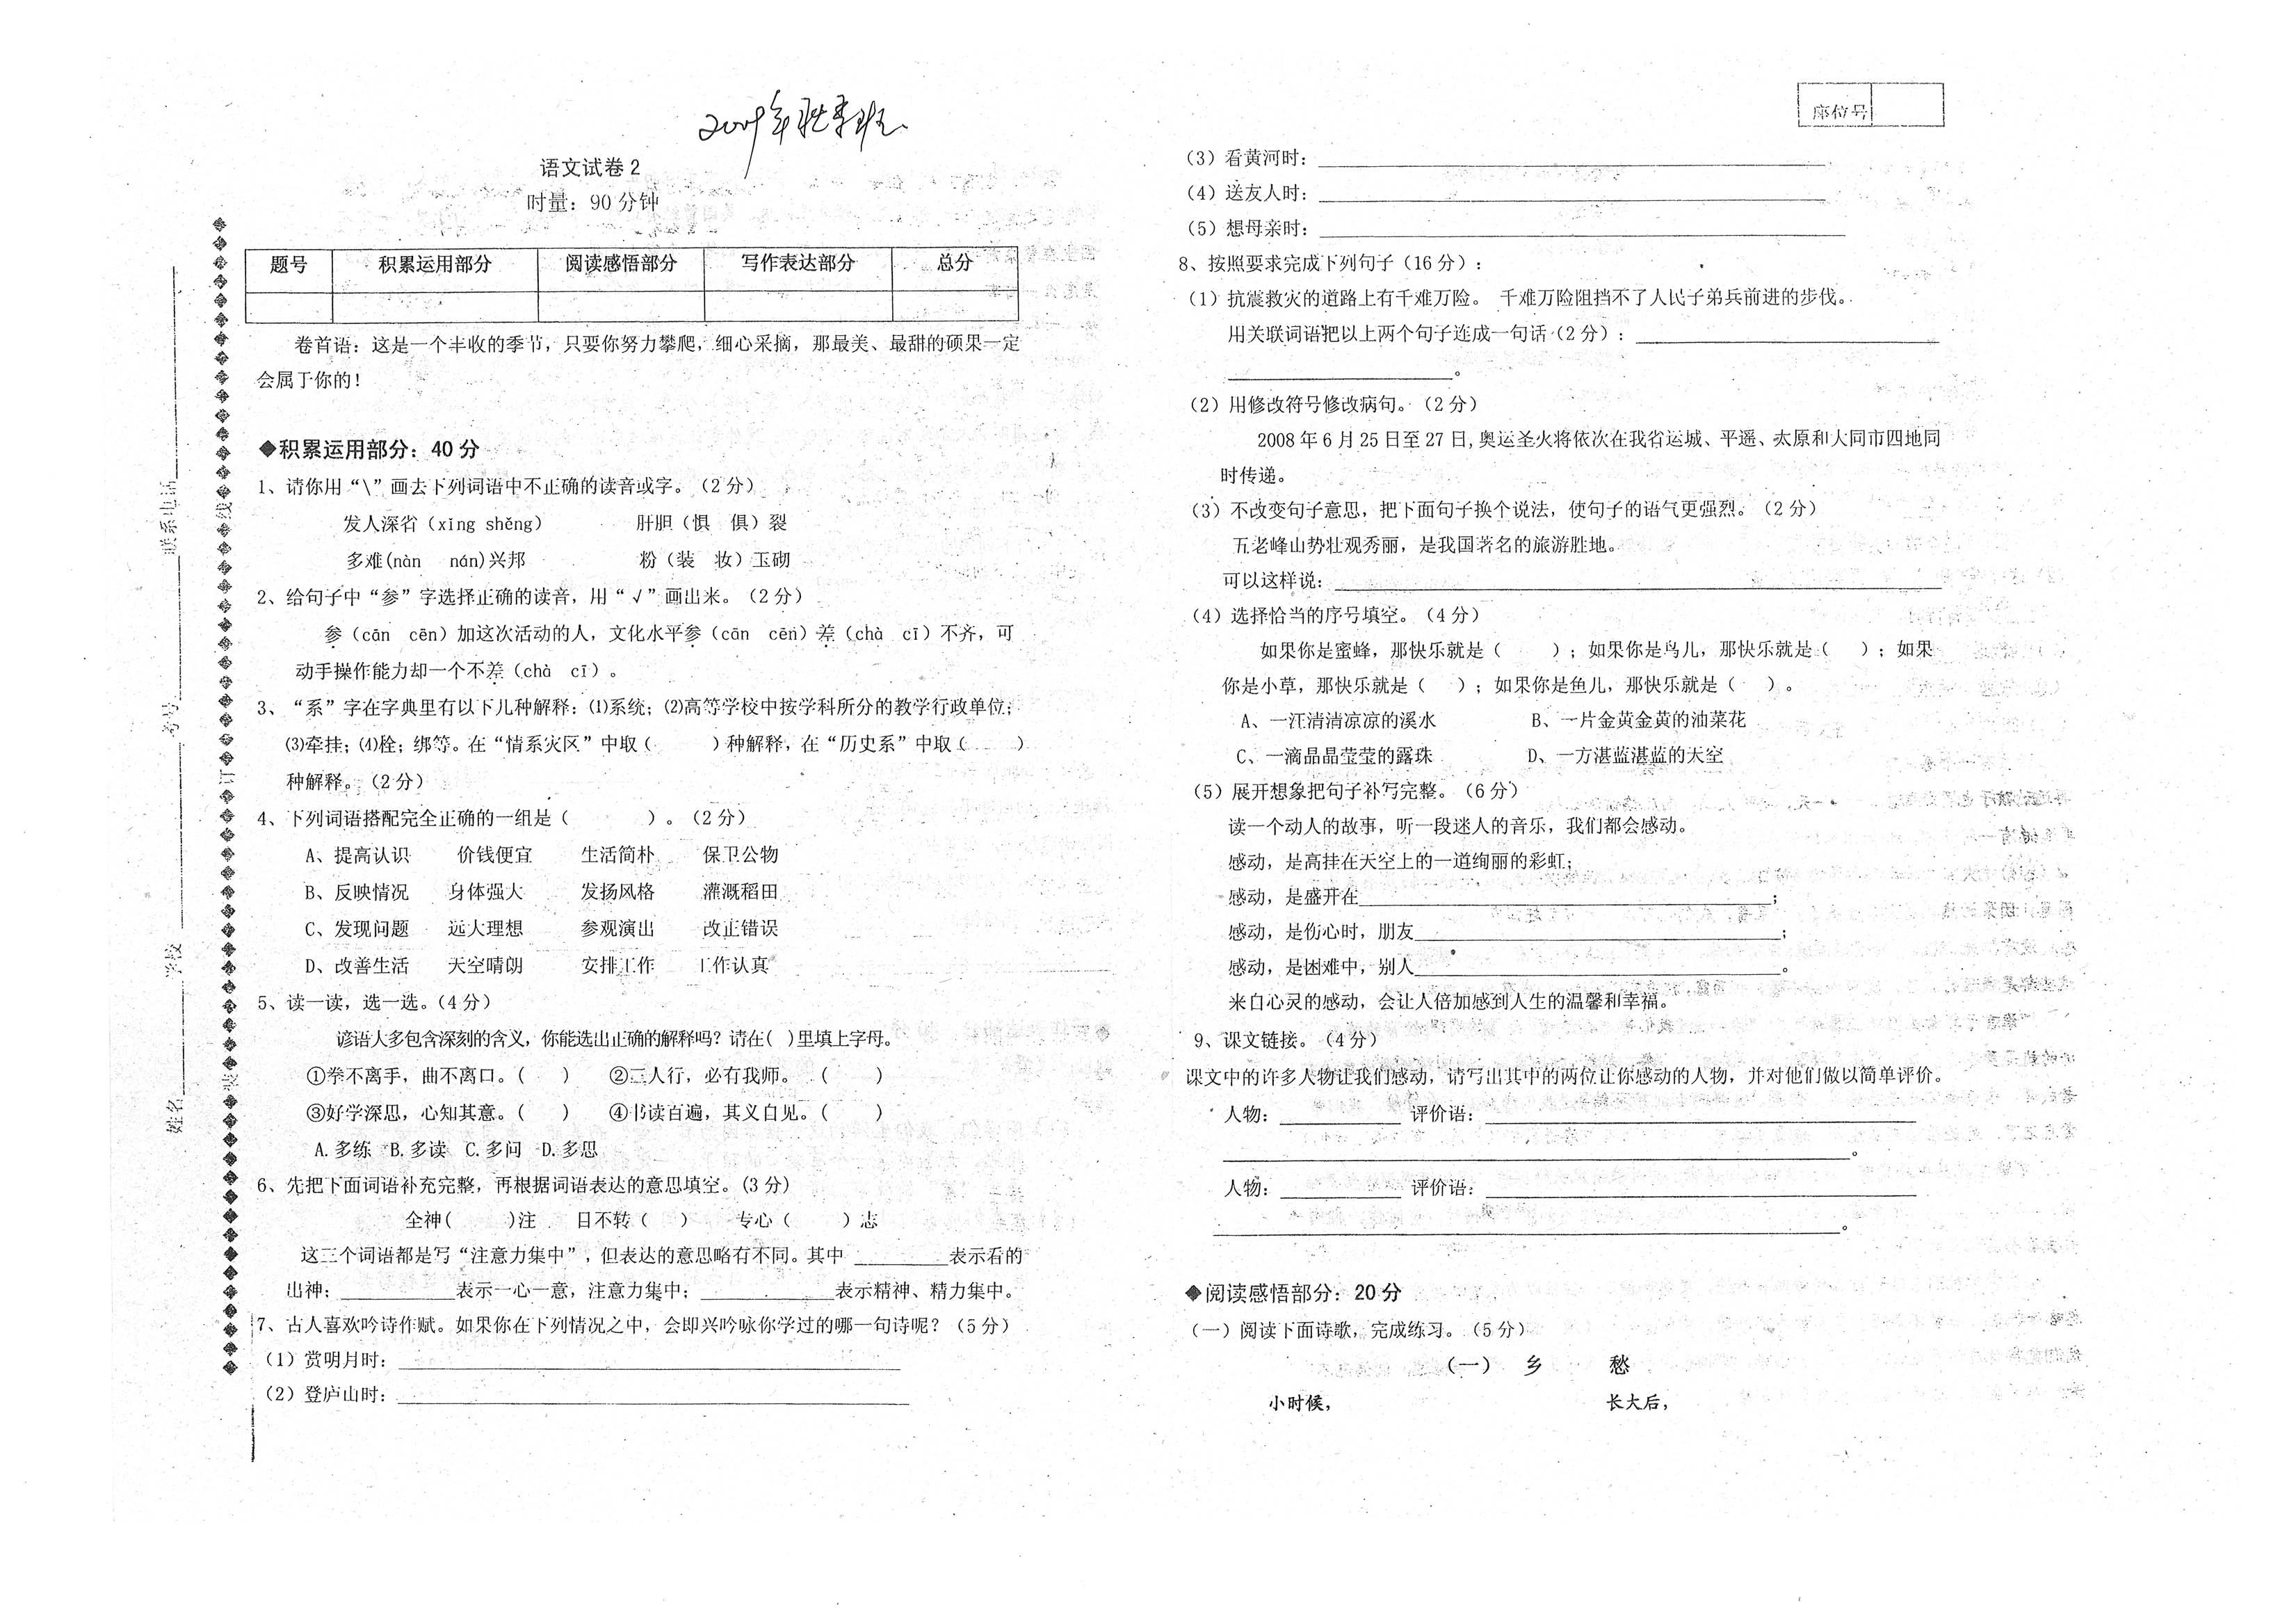 2009年秋季班
语文试卷2
时量：90分钟
题号 积累运用部分 阅读感悟部分 写作表达部分 总分
卷首语：这是一个丰收的季节，只要你努力攀爬，细心采摘，那最美、最甜的硕果一定
会属于你的！
◆积累运用部分：40分
1、请你用“\”画去下列词语中不正确的读音或字。（2分）
发人深省（xǐng shěng） 肝胆（惧 俱）裂
多难(nàn nán)兴邦 粉（装 妆）玉砌
2、给句子中“参”字选择正确的读音，用“√”画出来。（2分）
参（cān cēn）加这次活动的人，文化水平参（cān cēn）差（chà cī）不齐，可
动手操作能力却一个不差（chà cī）。
3、“系”字在字典里有以下几种解释：⑴系统；⑵高等学校中按学科所分的教学行政单位；
⑶牵挂；⑷栓；绑等。在“情系灾区”中取（ ）种解释，在“历史系”中取（ ）
种解释。（2分）
4、下列词语搭配完全正确的一组是（ ）。（2分）
A、提高认识 价钱便宜 生活简朴 保卫公物
B、反映情况 身体强大 发扬风格 灌溉稻田
C、发现问题 远大理想 参观演出 改正错误
D、改善生活 天空晴朗 安排工作 工作认真
5、读一读，选一选。（4分）
谚语大多包含深刻的含义，你能选出正确的解释吗？请在( )里填上字母。
①拳不离手，曲不离口。（ ） ②三人行，必有我师。（ ）
③好学深思，心知其意。（ ） ④书读百遍，其义自见。（ ）
A.多练 B.多读 C.多问 D.多思
6、先把下面词语补充完整，再根据词语表达的意思填空。(3分)
全神( )注 目不转（ ） 专心（ ）志
这三个词语都是写“注意力集中”，但表达的意思略有不同。其中 ________表示看的
出神；__________表示一心一意，注意力集中；____________表示精神、精力集中。
7、古人喜欢吟诗作赋。如果你在下列情况之中，会即兴吟咏你学过的哪一句诗呢？（5分）
（1）赏明月时：____________________
（2）登庐山时：____________________
姓名________学校________考号________联系电话________
装 订 线
座位号
（3）看黄河时：____________________
（4）送友人时：____________________
（5）想母亲时：____________________
8、按照要求完成下列句子（16分）：
（1）抗震救灾的道路上有千难万险。 千难万险阻挡不了人民子弟兵前进的步伐。
用关联词语把以上两个句子连成一句话（2分）：____________________
____________________。
（2）用修改符号修改病句。（2分）
2008年6月25日至27日,奥运圣火将依次在我省运城、平遥、太原和大同市四地同
时传递。
（3）不改变句子意思，把下面句子换个说法，使句子的语气更强烈。（2分）
五老峰山势壮观秀丽，是我国著名的旅游胜地。
可以这样说：____________________
（4）选择恰当的序号填空。（4分）
如果你是蜜蜂，那快乐就是（ ）；如果你是鸟儿，那快乐就是（ ）；如果
你是小草，那快乐就是（ ）；如果你是鱼儿，那快乐就是（ ）。
A、一汪清清凉凉的溪水 B、一片金黄金黄的油菜花
C、一滴晶晶莹莹的露珠 D、一方湛蓝湛蓝的天空
（5）展开想象把句子补写完整。（6分）
读一个动人的故事，听一段迷人的音乐，我们都会感动。
感动，是高挂在天空上的一道绚丽的彩虹；
感动，是盛开在____________________；
感动，是伤心时，朋友____________________；
感动，是困难中，别人____________________。
来自心灵的感动，会让人倍加感到人生的温馨和幸福。
9、课文链接。（4分）
课文中的许多人物让我们感动，请写出其中的两位让你感动的人物，并对他们做以简单评价。
人物：__________ 评价语：____________________
____________________。
人物：__________ 评价语：____________________
____________________。
◆阅读感悟部分：20分
（一）阅读下面诗歌，完成练习。（5分）
（一） 乡 愁
小时候， 长大后，